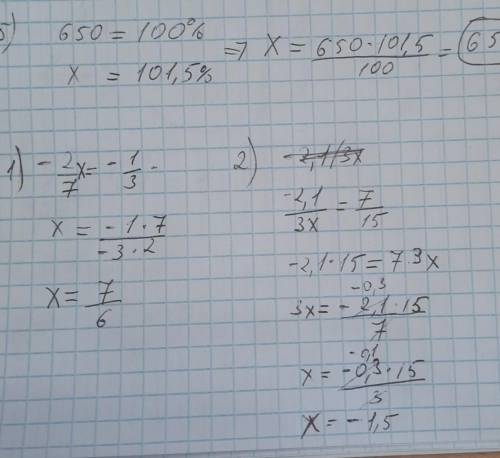 5) 650 = 100%
x = 101,5%
=> X = 650·101,5/100 = 65
1) -2/7 x = -1/3
x = -1·7/-3·2
x = 7/6
2) -2,1/3x
-2,1/3x = 7/15
-2,1·15 = 7·3x
-0,3
3x = -2,1·15/7
-0,1
x = -0,3·15/3
X = -1,5